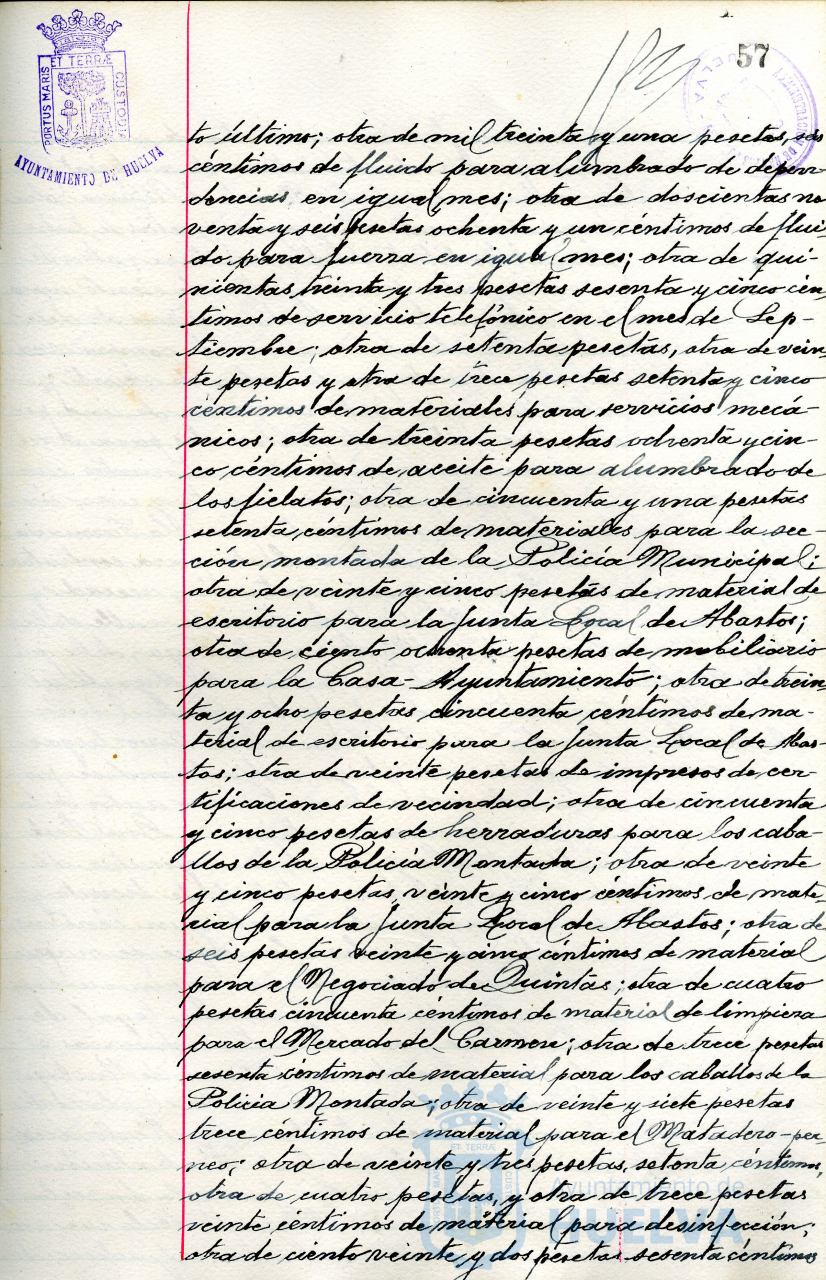 57
ET TERRÆ
PORTUS MARIS
CUSTODIA
AYUNTAMIENTO DE HUELVA
to último; otra de mil treinta y una pesetas, seis
céntimos de fluido para alumbrado de depen-
dencias en igual mes; otra de doscientas no
venta y seis pesetas ochenta y un céntimos de flui-
do para fuerza en igual mes; otra de qui-
nientas treinta y tres pesetas sesenta y cinco cén-
timos de servicio telefónico en el mes de Sep-
tiembre; otra de setenta pesetas, otra de vein-
te pesetas y otra de trece pesetas setenta y cinco
céntimos de materiales para servicios mecá-
nicos; otra de treinta pesetas ochenta y cin-
co céntimos de aceite para alumbrado de
los fielatos; otra de cincuenta y una pesetas
setenta céntimos de materiales para la sec-
ción montada de la Policía Municipal;
otra de veinte y cinco pesetas de material de
escritorio para la Junta Local de Abastos;
otra de ciento ochenta pesetas de mobiliario
para la Casa-Ayuntamiento; otra de trein-
ta y ocho pesetas cincuenta céntimos de ma-
terial de escritorio para la Junta Local de Abas-
tos; otra de veinte pesetas de impresos de cer-
tificaciones de vecindad; otra de cincuenta
y cinco pesetas de herraduras para los caba-
llos de la Policía Montada; otra de veinte
y cinco pesetas, veinte y cinco céntimos de mate-
rial para la Junta Local de Abastos; otra de
seis pesetas veinte y cinco céntimos de material
para el Negociado de Quintas; otra de cuatro
pesetas cincuenta céntimos de material de limpieza
para el Mercado del Carmen; otra de trece pesetas
sesenta céntimos de material para los caballos de la
Policía Montada; otra de veinte y siete pesetas
trece céntimos de material para el Matadero-per-
neo; otra de veinte y tres pesetas, setenta céntimos,
otra de cuatro pesetas, y otra de trece pesetas
veinte céntimos de material para desinfección;
otra de ciento veinte y dos pesetas sesenta céntimos
Ayuntamiento de
HUELVA